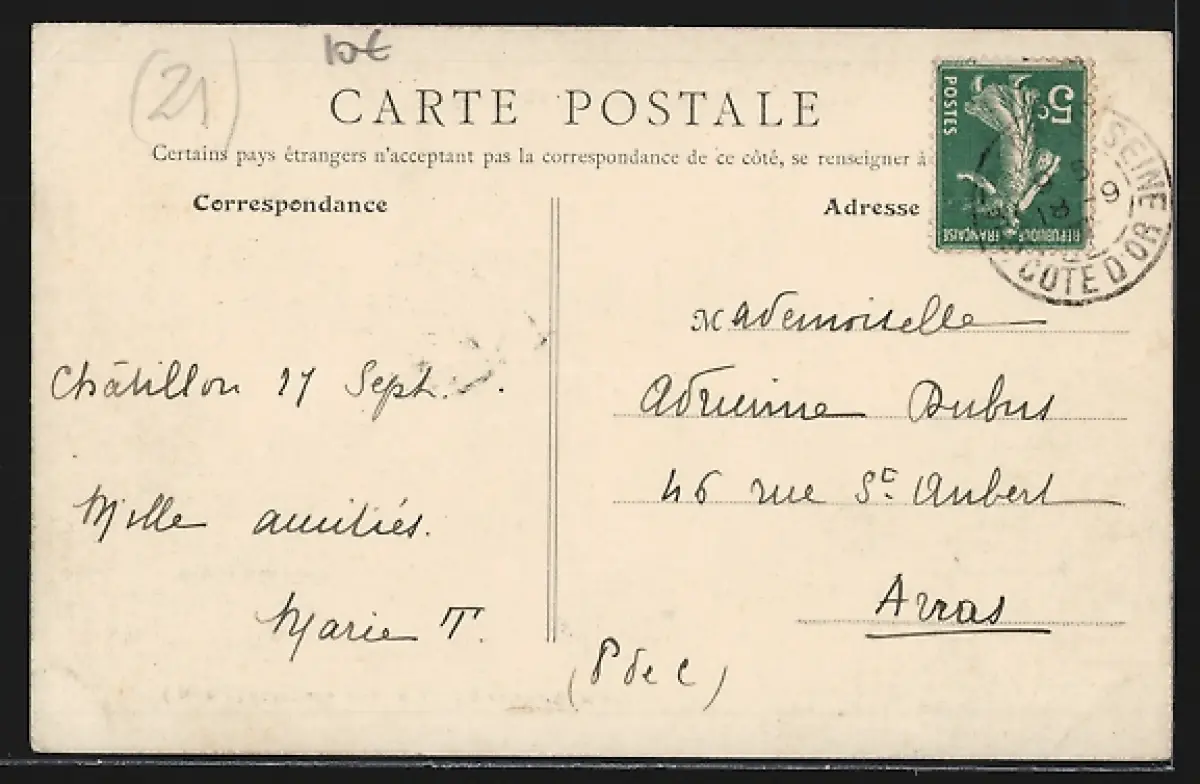 (21)
10€
CARTE POSTALE
Certains pays étrangers n'acceptant pas la correspondance de ce côté, se renseigner à
Correspondance
Adresse
POSTES
5c
REPUBLIQUE FRANÇAISE
SEINE
COTE D'OR
Mademoiselle
Adrienne Dubus
46 rue St Aubert
Arras
(P de C)
Châtillon 17 Sept.
Mille amitiés.
Marie T.